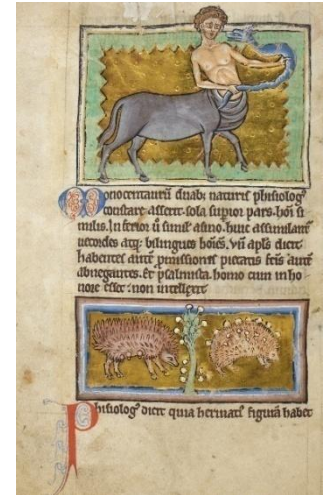 Onocentaurū duab; naturis phisiolog⁹
constare asserit. sola supior pars. hōi si
milis. Inferior ū similꝭ asino. huic assimilant
uecordes atq; bilingues hoīes. vñ apls dicit
habentes autē pmissionis pietatis
abnegantes. Et psalmista. homo cum in ho
nore esset : non intellexit
Phisiolog⁹ dicit quia herinati⁹ figurā habet